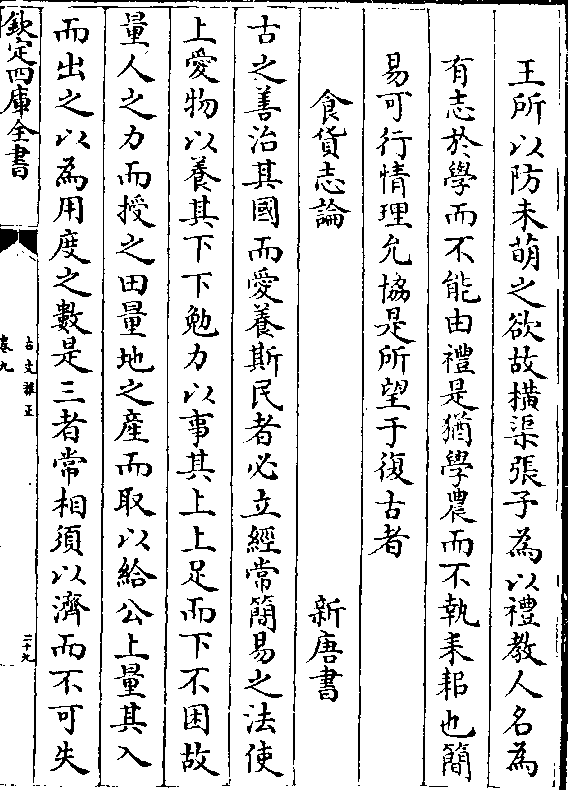 王所以防未萌之欲故横渠張子為以禮教人名為
有志於學而不能由禮是猶學農而不執耒耜也簡
易可行情理允協是所望于復古者
食貨志論 新唐書
古之善治其國而愛養斯民者必立經常簡易之法使
上愛物以養其下下勉力以事其上上足而下不困故
量人之力而授之田量地之產而取以給公上量其入
而出之以為用度之數是三者常相須以濟而不可失
欽定四庫全書
古文雅正
卷九
二十九